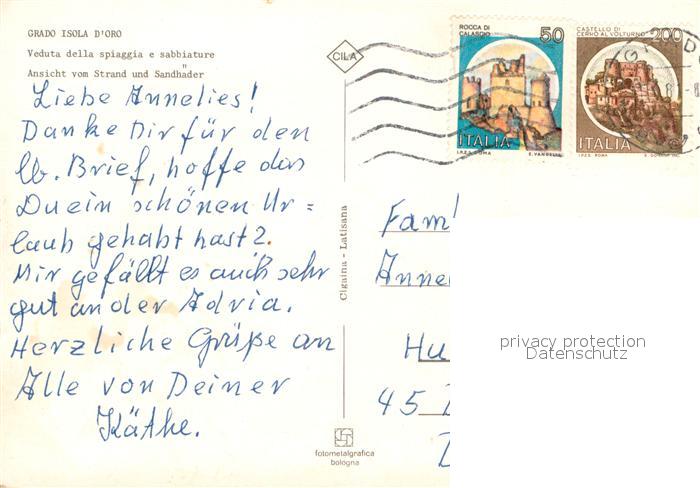 GRADO ISOLA D'ORO
Veduta della spiaggia e sabbiature
Ansicht vom Strand und Sandhäder
CILA
ROCCA DI CALASCIO
50
ITALIA
I.P.Z.S. ROMA
E. VANGELLI
CASTELLO DI CERRO AL VOLTURNO
200
ITALIA
I.P.Z.S. ROMA
Liebe Annelies!
Danke Dir für den
lb. Brief, hoffe das
Du ein schönen Ur=
laub gehabt hast?
Mir gefällt es auch sehr
gut an der Adria.
Herzliche Grüße an
Alle von Deiner
Käthe.
Cigaina - Latisana
fotometalgrafica
bologna
Fam
Anne
Hu
45
privacy protection
Datenschutz